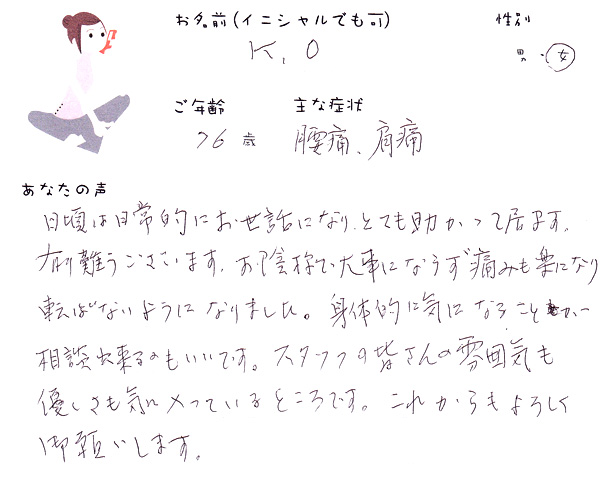 お名前(イニシャルでも可)
性別
K, O
男・女
ご年齢
主な症状
76 歳
腰痛、肩痛
あなたの声
日頃は日常的にお世話になり、とても助かって居ます。
有難うございます。お陰様で大事にならず痛みも楽になり
転ばないようになりました。身体的に気になること
相談出来るのもいいです。スタッフの皆さんの雰囲気も
優しさも気に入っているところです。これからもよろしく
御願いします。